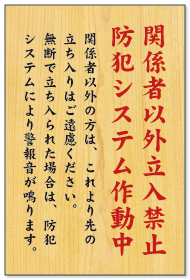 関係者以外立入禁止
防犯システム作動中
関係者以外の方は、これより先の
立ち入りはご遠慮ください。
無断で立ち入られた場合は、防犯
システムにより警報音が鳴ります。